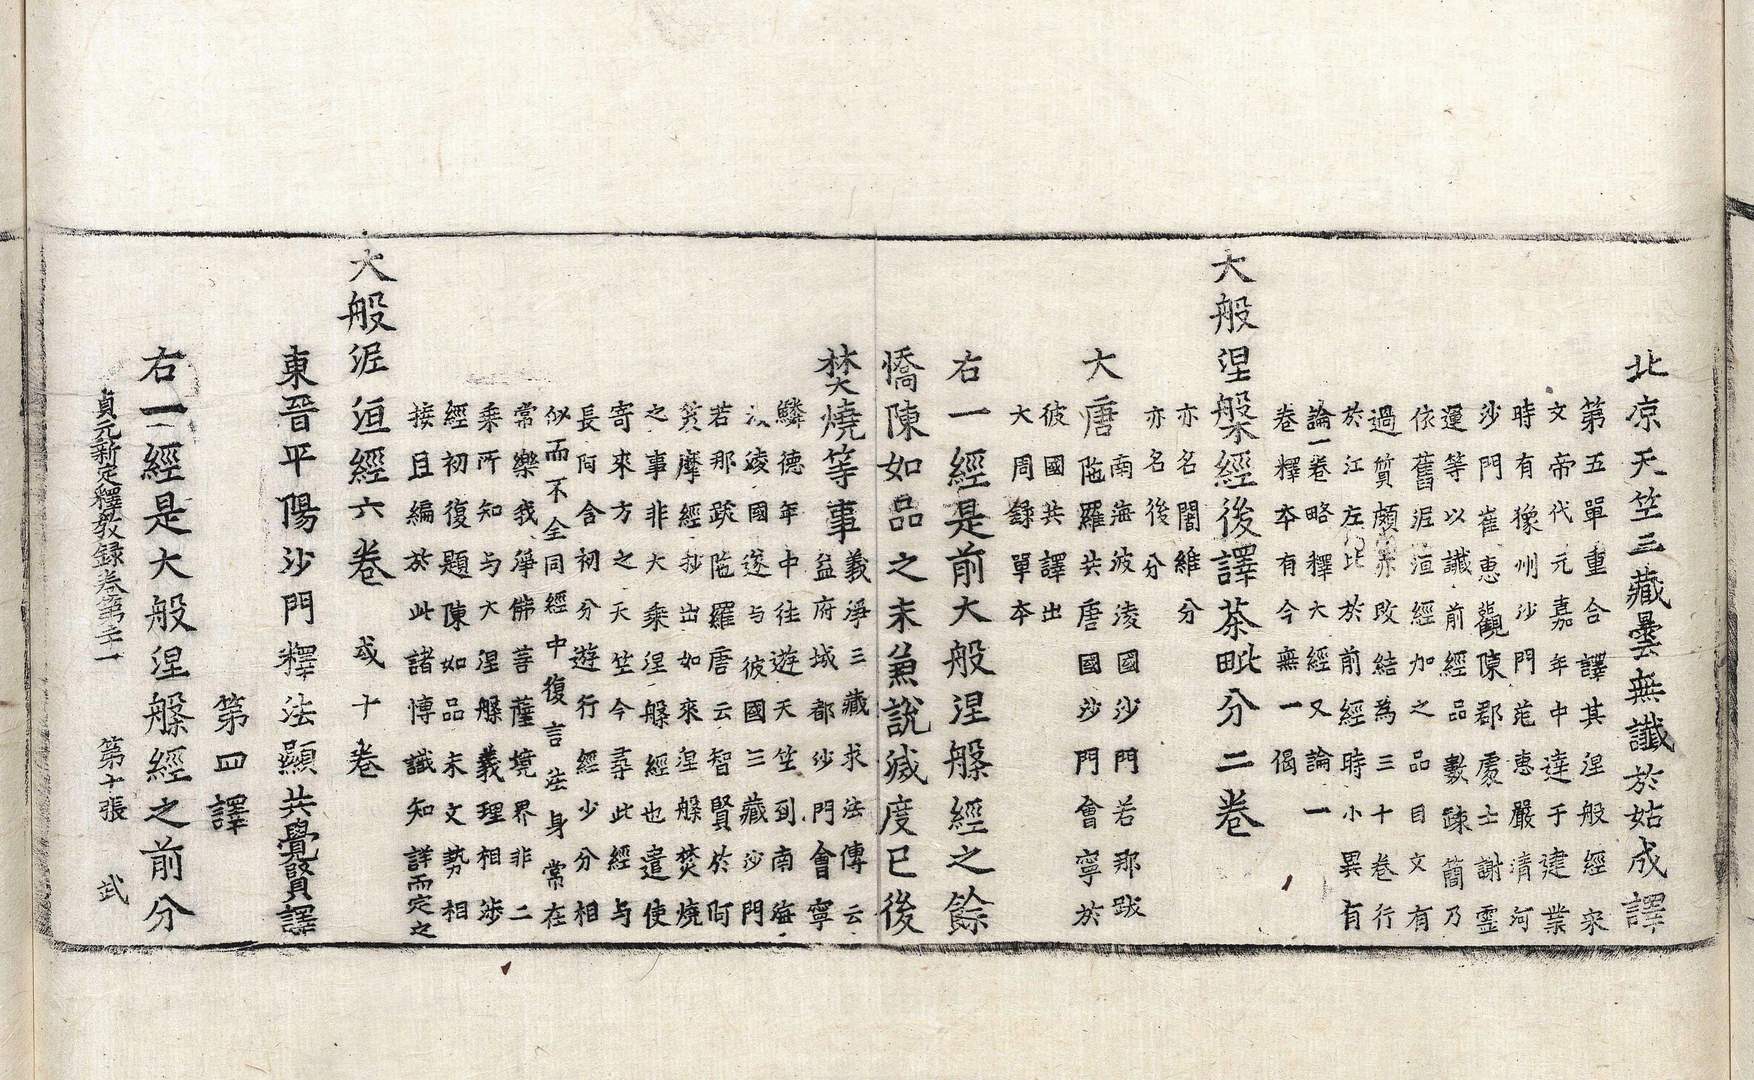 北涼天竺三藏曇無讖於姑成譯
第五單重合譯其涅般經來
文帝代元嘉年中達于建業
時有豫州沙門范惠嚴清河
沙門崔惠觀陳郡處士謝霊
運等以讖前經品數踈簡乃
依舊泥洹經加之品目文有
過質頗亦改結為三十卷行
於江左比於前經時小異有
論一卷略釋大經又論一
卷釋本有今無一偈
大般涅槃經後譯荼毗分二卷
亦名闍維分
亦名後分
大唐南海波淩國沙門若那跋
陁羅共唐國沙門會寧於
彼國共譯出
大周錄單本
右一經是前大般涅槃經之餘
憍陳如品之末兼說滅度已後
焚燒等事義淨三藏求法傳云
益府城都沙門會寧
鱗德年中往遊天竺到南海
淩國遂与彼國三藏沙門
若那跋陁羅唐云智賢於阿
笈摩經抄出如來涅槃焚燒
之事非大乘涅槃經也遣使
寄來方之天竺今尋此經与
長阿含初分遊行經少分相
似而不全同經中復言法身常在
常樂我淨佛菩薩境界非二
乘所知与大涅槃義理相涉
經初復題陳如品末文勢相
接且編於此諸博識知詳而定之
大般泥洹經六卷 或十卷
東晉平陽沙門釋法顯共覺賢譯
第四譯
右一經是大般涅槃經之前分
貞元新定釋教録卷第二十一 第十張 武